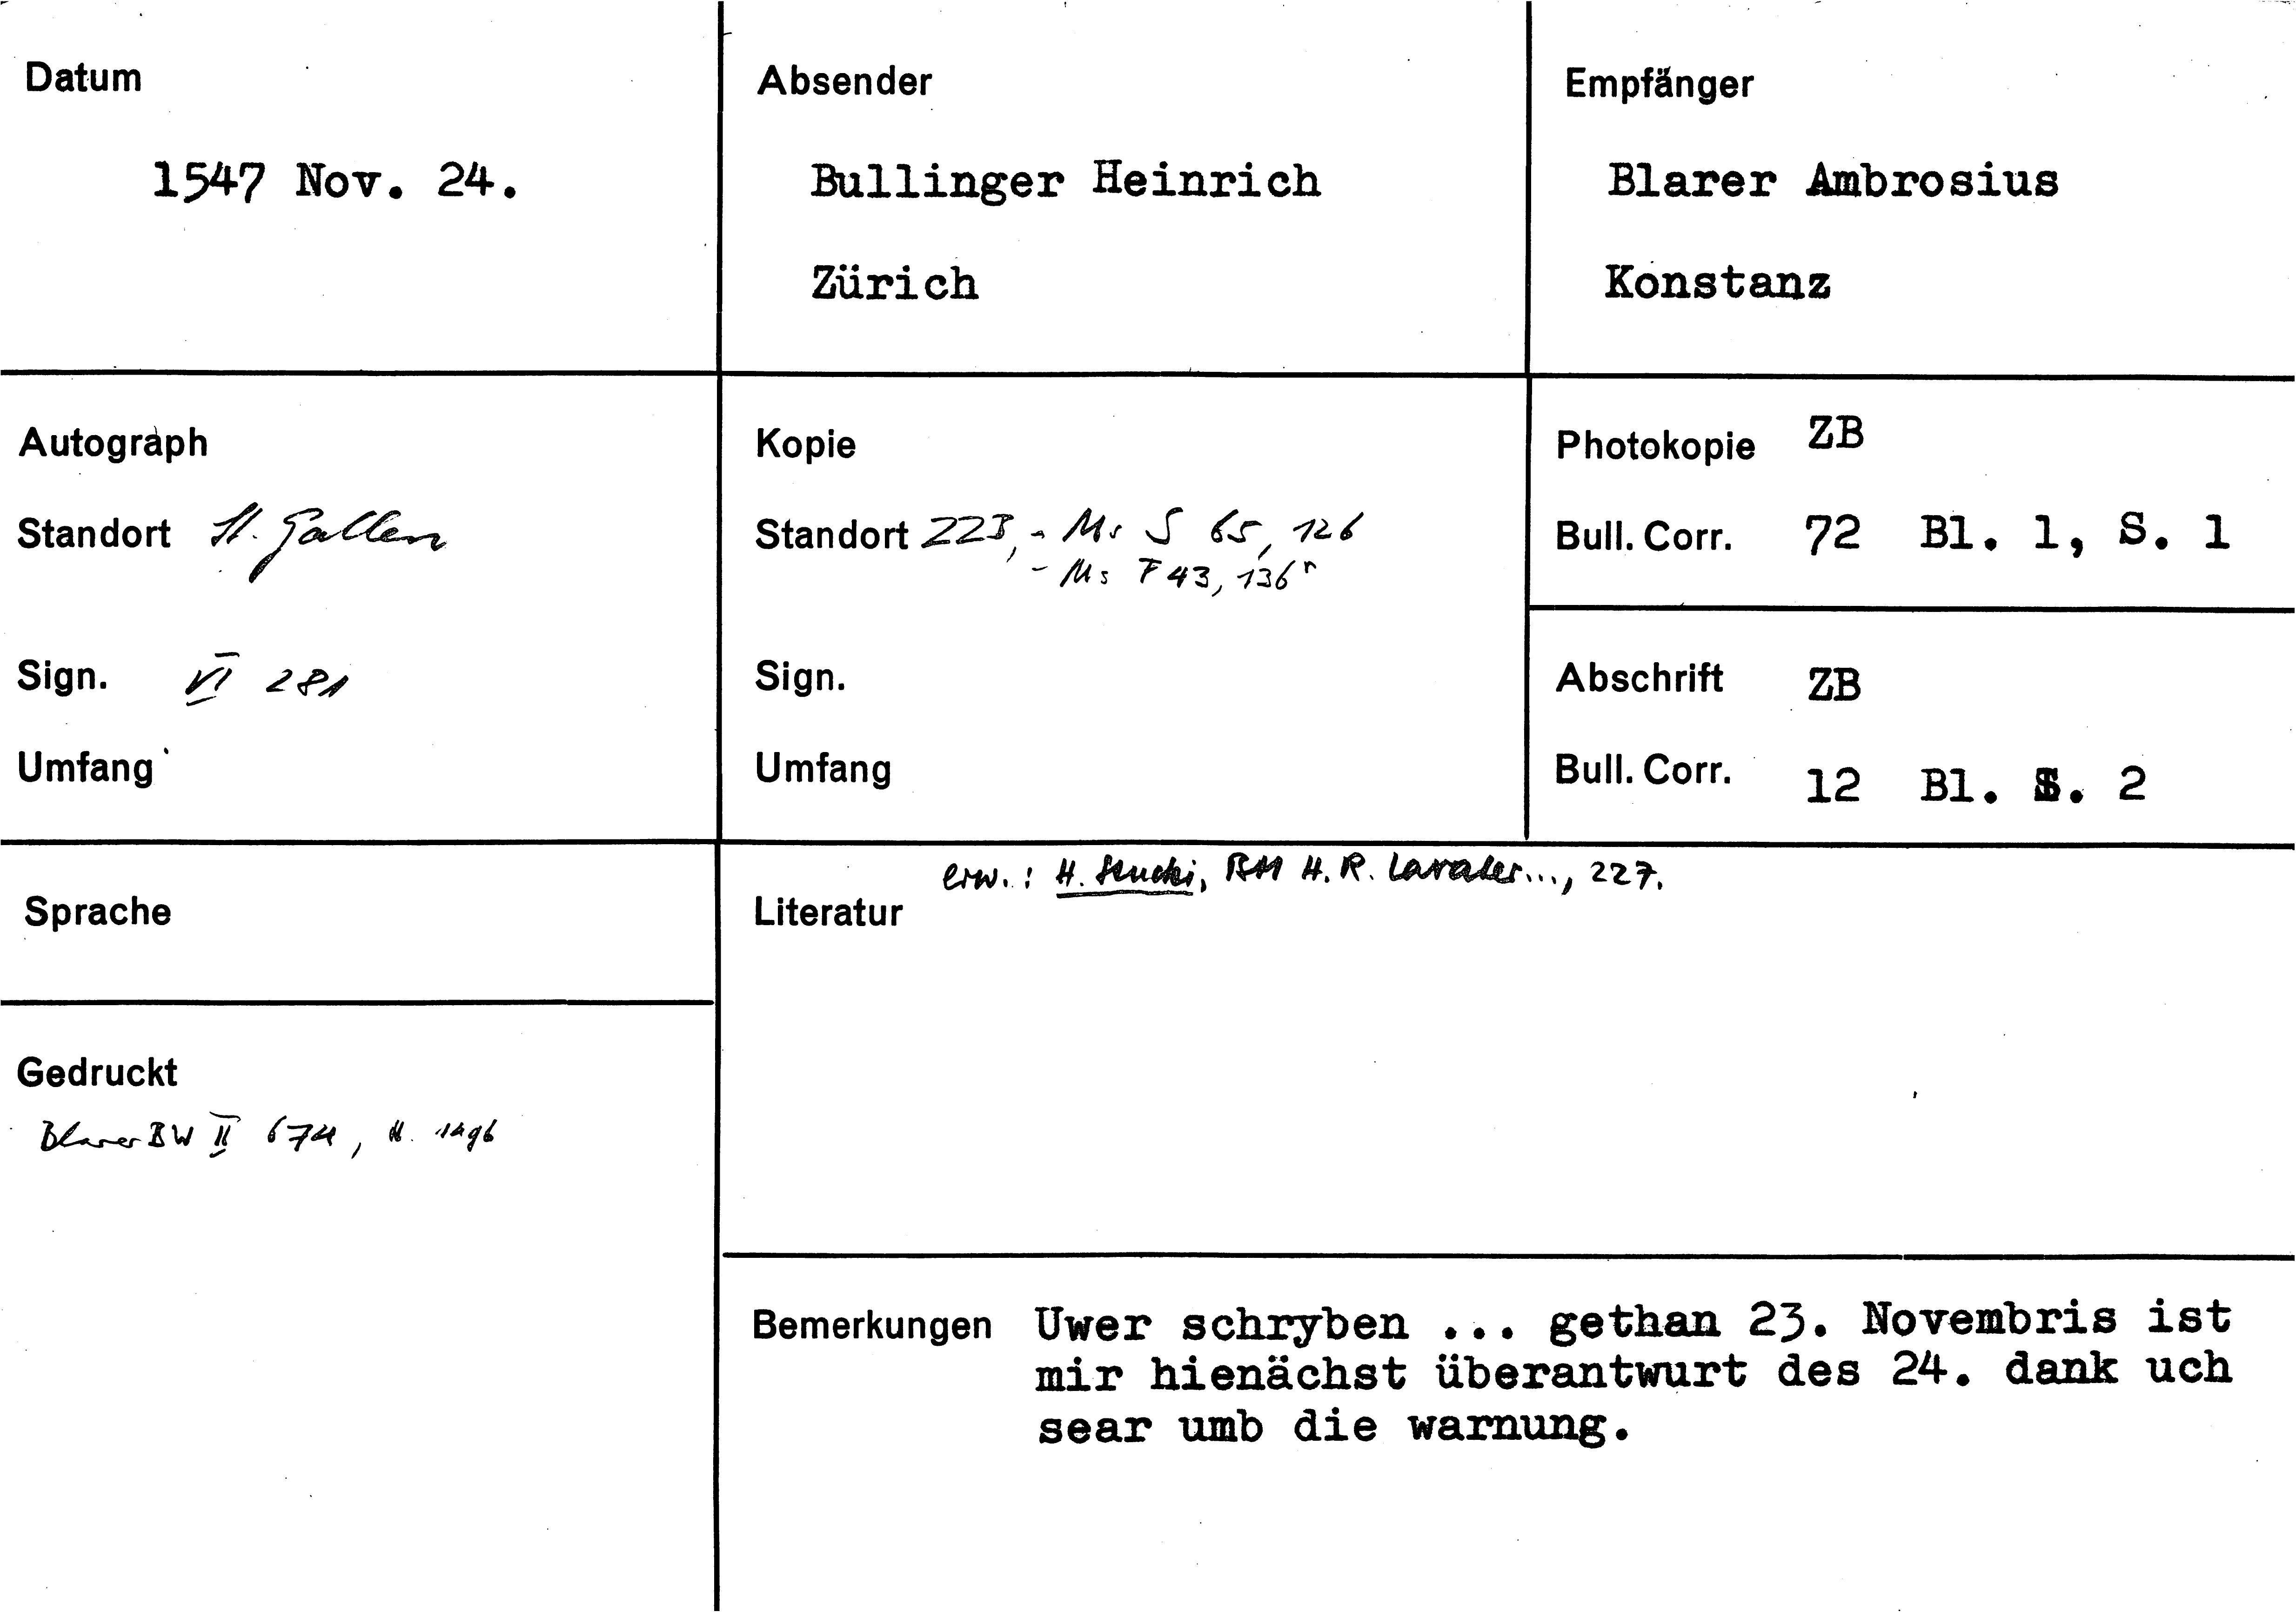 Datum
1547 Nov. 24.
Absender
Bullinger Heinrich
Zürich
Empfänger
Blarer Ambrosius
Konstanz
Autograph
Standort St. Gallen
Sign. VI 281
Umfang
Kopie
Standort ZZB, - Ms S 65, 126
- Ms F 43, 136r
Sign.
Umfang
Photokopie ZB
Bull. Corr. 72 Bl. 1, S. 1
Abschrift ZB
Bull. Corr. 12 Bl. S. 2
Sprache
Gedruckt
Blarer BW II 674, N. 1496
erw.: H. Stucki, BM H. R. Lavater..., 227.
Literatur
Bemerkungen Uwer schryben ... gethan 23. Novembris ist
mir hienächst überantwurt des 24. dank uch
sear umb die warnung.